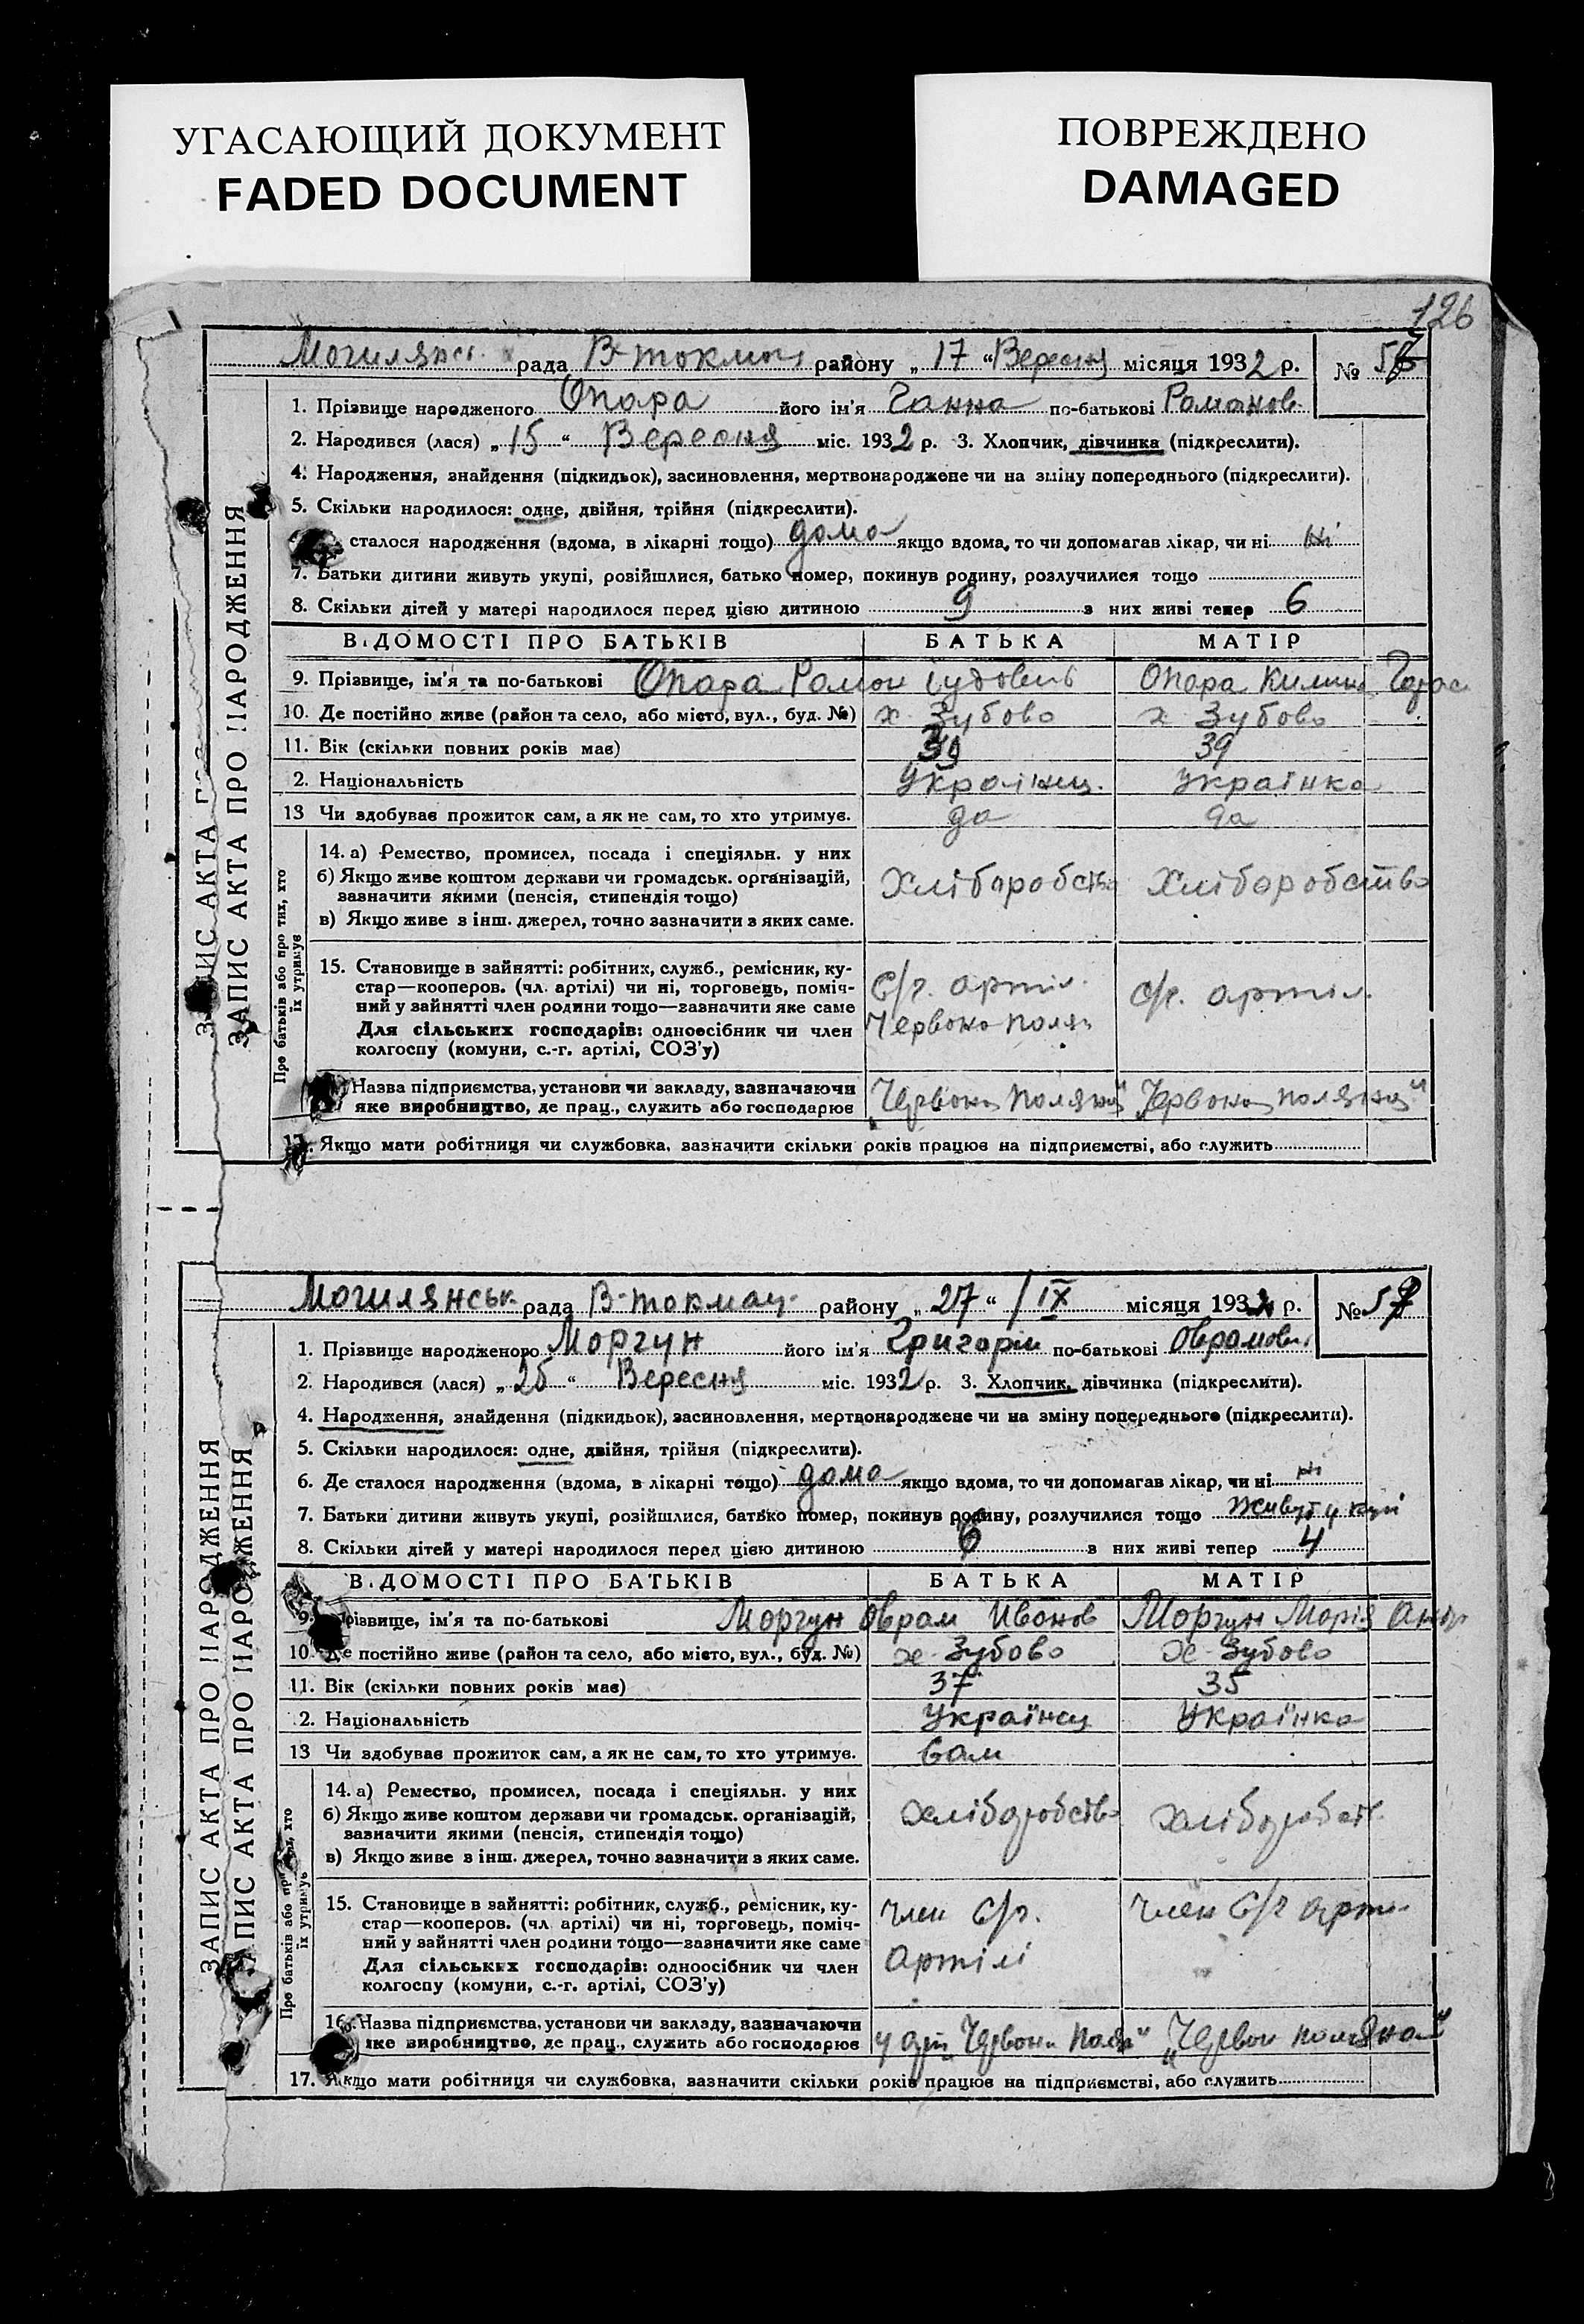 УГАСАЮЩИЙ ДОКУМЕНТ
FADED DOCUMENT
ПОВРЕЖДЕНО
DAMAGED
126
Могилянськ. рада В-токмац району „17“ Вересня місяця 1932 р. № 5
1. Прізвище народженого Опара його ім'я Ганна по-батькові Романов.
2. Народився (лася) „15“ Вересня міс. 1932 р. 3. Хлопчик, дівчинка (підкреслити).
4. Народження, знайдення (підкидьок), засиновлення, мертвонароджене чи на зміну попереднього (підкреслити).
5. Скільки народилося: одне, двійня, трійня (підкреслити).
сталося народження (вдома, в лікарні тощо) дома якщо вдома, то чи допомагав лікар, чи ні ні
7. Батьки дитини живуть укупі, розійшлися, батько помер, покинув родину, розлучилися тощо
8. Скільки дітей у матері народилося перед цією дитиною 9 з них живі тепер 6
ВІДОМОСТІ ПРО БАТЬКІВ БАТЬКА МАТІР
9. Прізвище, ім'я та по-батькові Опара Роман Опара Килина
10. Де постійно живе (район та село, або місто, вул., буд. №) х Зубово х Зубово
11. Вік (скільки повних років має) 39 39
2. Національність Українец. Українка
13 Чи здобуває прожиток сам, а як не сам, то хто утримує. да да
14. а) Ремество, промисел, посада і спеціяльн. у них
б) Якщо живе коштом держави чи громадськ. організацій,
зазначити якими (пенсія, стипендія тощо)
в) Якщо живе з інш. джерел, точно зазначити з яких саме.
Хліборобство Хліборобство
15. Становище в зайнятті: робітник, служб., ремісник, ку-
стар—кооперов. (чл. артілі) чи ні, торговець, поміч-
ний у зайнятті член родини тощо—зазначити яке саме
Для сільських господарів: одноосібник чи член
колгоспу (комуни, с.-г. артілі, СОЗ'у)
С/г. артіл. с/г. артіл.
Червона Поля
Назва підприємства, установи чи закладу, зазначаючи
яке виробництво, де прац., служить або господарює
„Червона Поляна“ „Червона поляна“
17. Якщо мати робітниця чи службовка, зазначити скільки років працює на підприємстві, або служить
Про батьків або про тих, хто
їх утримує
ЗАПИС АКТА ПРО НАРОДЖЕННЯ
Могилянськ. рада В-токмац. району „27“ /IX місяця 1932 р. № 5
1. Прізвище народженого Моргун його ім'я Григорій по-батькові Оврамов.
2. Народився (лася) „25“ Вересня міс. 1932 р. 3. Хлопчик, дівчинка (підкреслити).
4. Народження, знайдення (підкидьок), засиновлення, мертвонароджене чи на зміну попереднього (підкреслити).
5. Скільки народилося: одне, двійня, трійня (підкреслити).
6. Де сталося народження (вдома, в лікарні тощо) дома якщо вдома, то чи допомагав лікар, чи ні ні
7. Батьки дитини живуть укупі, розійшлися, батько помер, покинув родину, розлучилися тощо живуть у купі
8. Скільки дітей у матері народилося перед цією дитиною 6 з них живі тепер 4
ВІДОМОСТІ ПРО БАТЬКІВ БАТЬКА МАТІР
9. Прізвище, ім'я та по-батькові Моргун Оврам Иванов Моргун Марія Андр
10. Де постійно живе (район та село, або місто, вул., буд. №) х Зубово х Зубово
11. Вік (скільки повних років має) 37 35
2. Національність Українец Українка
13 Чи здобуває прожиток сам, а як не сам, то хто утримує. Сам
14. а) Ремество, промисел, посада і спеціяльн. у них
б) Якщо живе коштом держави чи громадськ. організацій,
зазначити якими (пенсія, стипендія тощо)
в) Якщо живе з інш. джерел, точно зазначити з яких саме.
хліборобств хліборобств.
15. Становище в зайнятті: робітник, служб., ремісник, ку-
стар—кооперов. (чл. артілі) чи ні, торговець, поміч-
ний у зайнятті член родини тощо—зазначити яке саме
Для сільських господарів: одноосібник чи член
колгоспу (комуни, с.-г. артілі, СОЗ'у)
член С/г. член С/г арті.
артілі
16. Назва підприємства, установи чи закладу, зазначаючи
яке виробництво, де прац., служить або господарює
у арт „Червона Поля“ „Червон поляна“
17. Якщо мати робітниця чи службовка, зазначити скільки років працює на підприємстві, або служить
ЗАПИС АКТА ПРО НАРОДЖЕННЯ